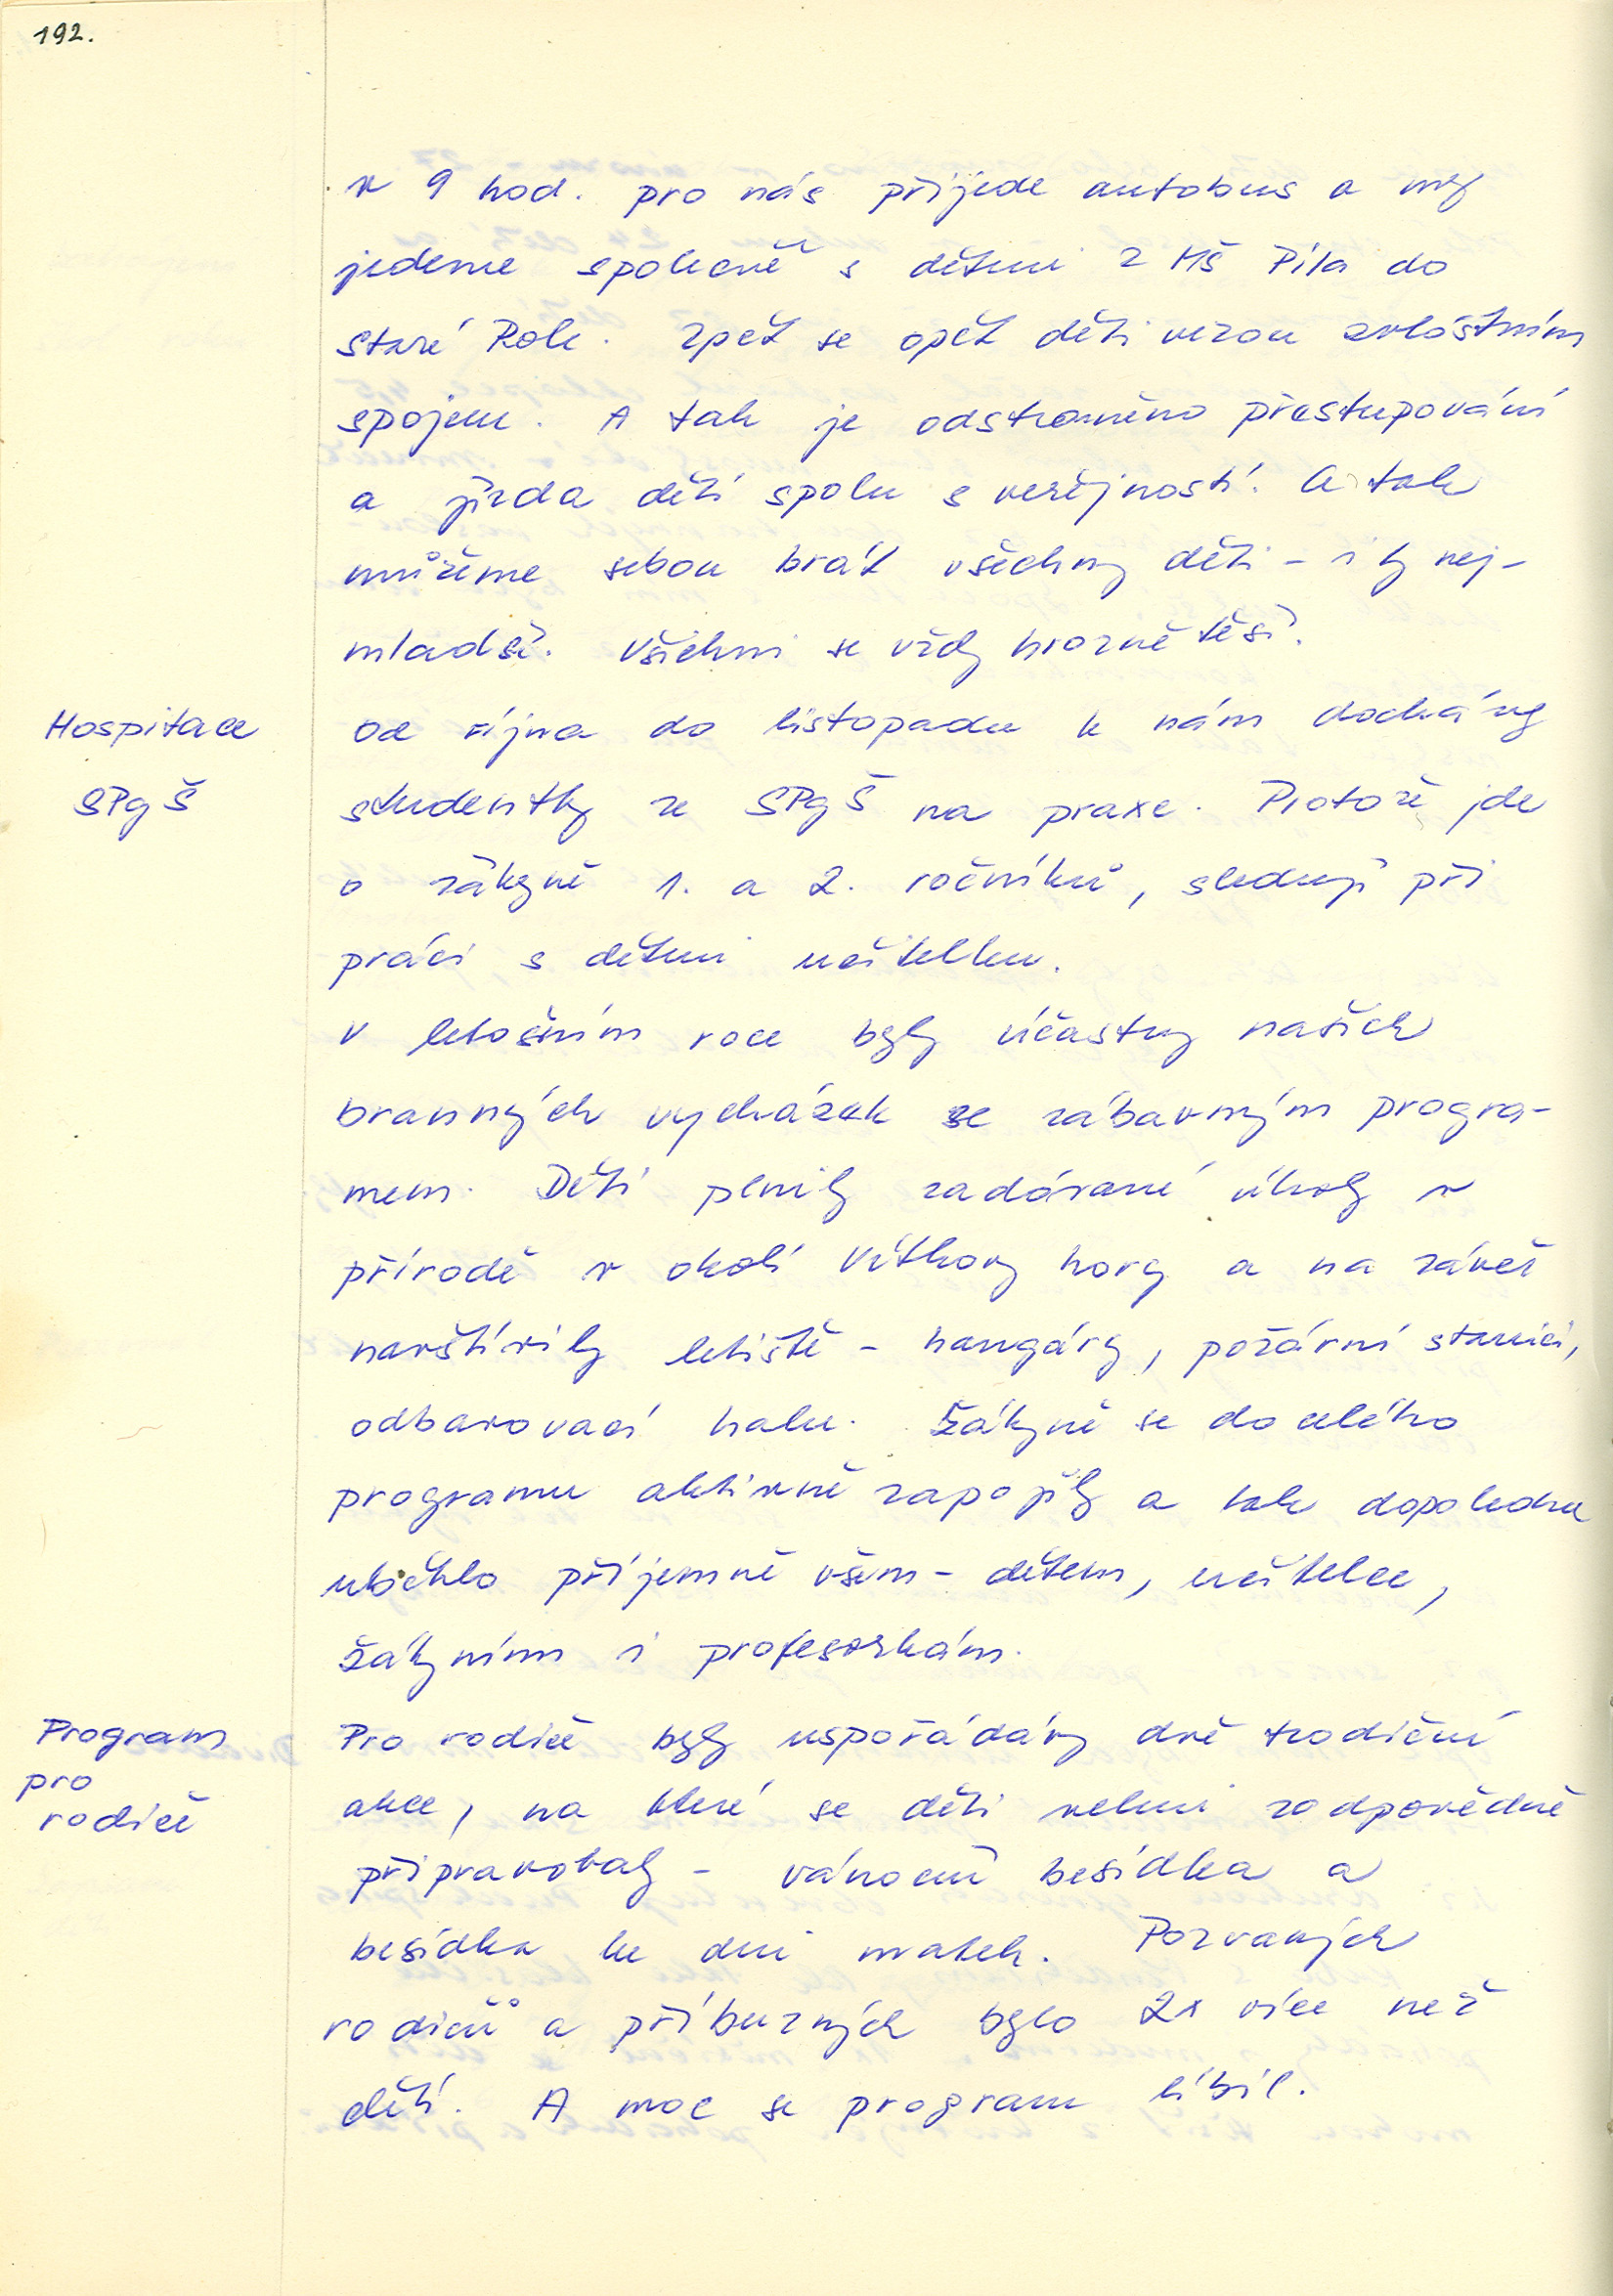 192.
v 9 hod. pro nás přijede autobus a my
jedeme společně s dětmi z MŠ Pila do
staré Role. Zpět se opět děti vezou zvláštním
spojem. A tak je odstraněno přestupování
a jízda dětí spolu s veřejností. A tak
můžeme sebou brát všechny děti - i ty nej-
mladší. Všichni se vždy hrozně těší.
Hospitace
SPgŠ
Od října do listopadu k nám docházely
studentky ze SPgŠ na praxe. Protože jde
o žákyně 1. a 2. ročníků, sledují při
práci s dětmi učitelku.
V letošním roce byly účastny našich
branných vycházek se zábavným progra-
mem. Děti plnily zadávané úkoly v
přírodě v okolí Vítkovy hory a na závěr
navštívily letiště - hangáry, požární stanici,
odbavovací halu. Žákyně se do celého
programu aktivně zapojily a tak dopoledne
uběhlo příjemně všem - dětem, učitelce,
žákyním i profesorkám.
Program
pro
rodiče
Pro rodiče byly uspořádány dvě tradiční
akce, na které se děti velmi zodpovědně
připravovaly - vánoční besídka a
besídka ke dni matek. Pozvaných
rodičů a příbuzných bylo 2x více než
dětí. A moc se program líbil.